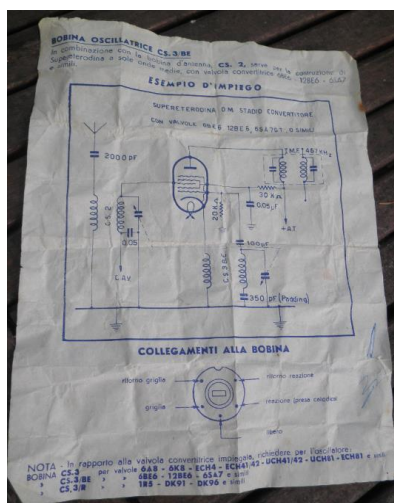 BOBINA OSCILLATRICE CS.3/BE
In combinazione con la bobina d'aereo, CS. 2, serve per la costruzione di
Supereterodina a sole onde medie, con valvole convertitrici 6BE6 - 12BE6 - 6SA7
e simili
ESEMPIO D'IMPIEGO
SUPERETERODINA O.M STADIO CONVERTITORE
CON VALVOLE 6BE6 12BE6, 6SA7GT, O SIMILI
2000 PF
I.M.F.
30 KΩ
0,05 µF
+AT
20KΩ
C.S.2
0,05
C.A.V
100 PF
350 PF (Padding)
COLLEGAMENTI ALLA BOBINA
ritorno griglia
ritorno reazione
griglia
reazione (presa catodica)
libero
NOTA - In rapporto alla valvola convertitrice impiegata, richiedere per l'oscillatore:
BOBINA CS.3 per valvola 6A8 - 6K8 - ECH4 - ECH41/42 - UCH41/42 - UCH81 - ECH81 e simili
CS.3/BE » » 6BE6 - 12BE6 - 6SA7 e simili
CS.3/R » » 1R5 - DK91 - DK96 e simili